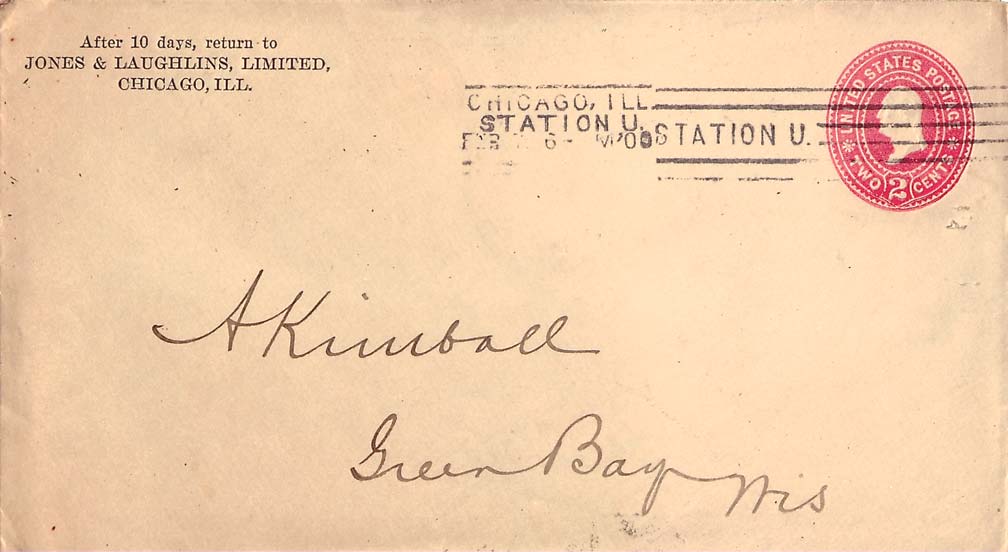 After 10 days, return to
JONES & LAUGHLINS, LIMITED,
CHICAGO, ILL.
CHICAGO, ILL.
STATION U.
FEB 6- M '00
STATION U.
UNITED STATES POSTAGE
TWO 2 CENTS
A Kimball
Green Bay Wis